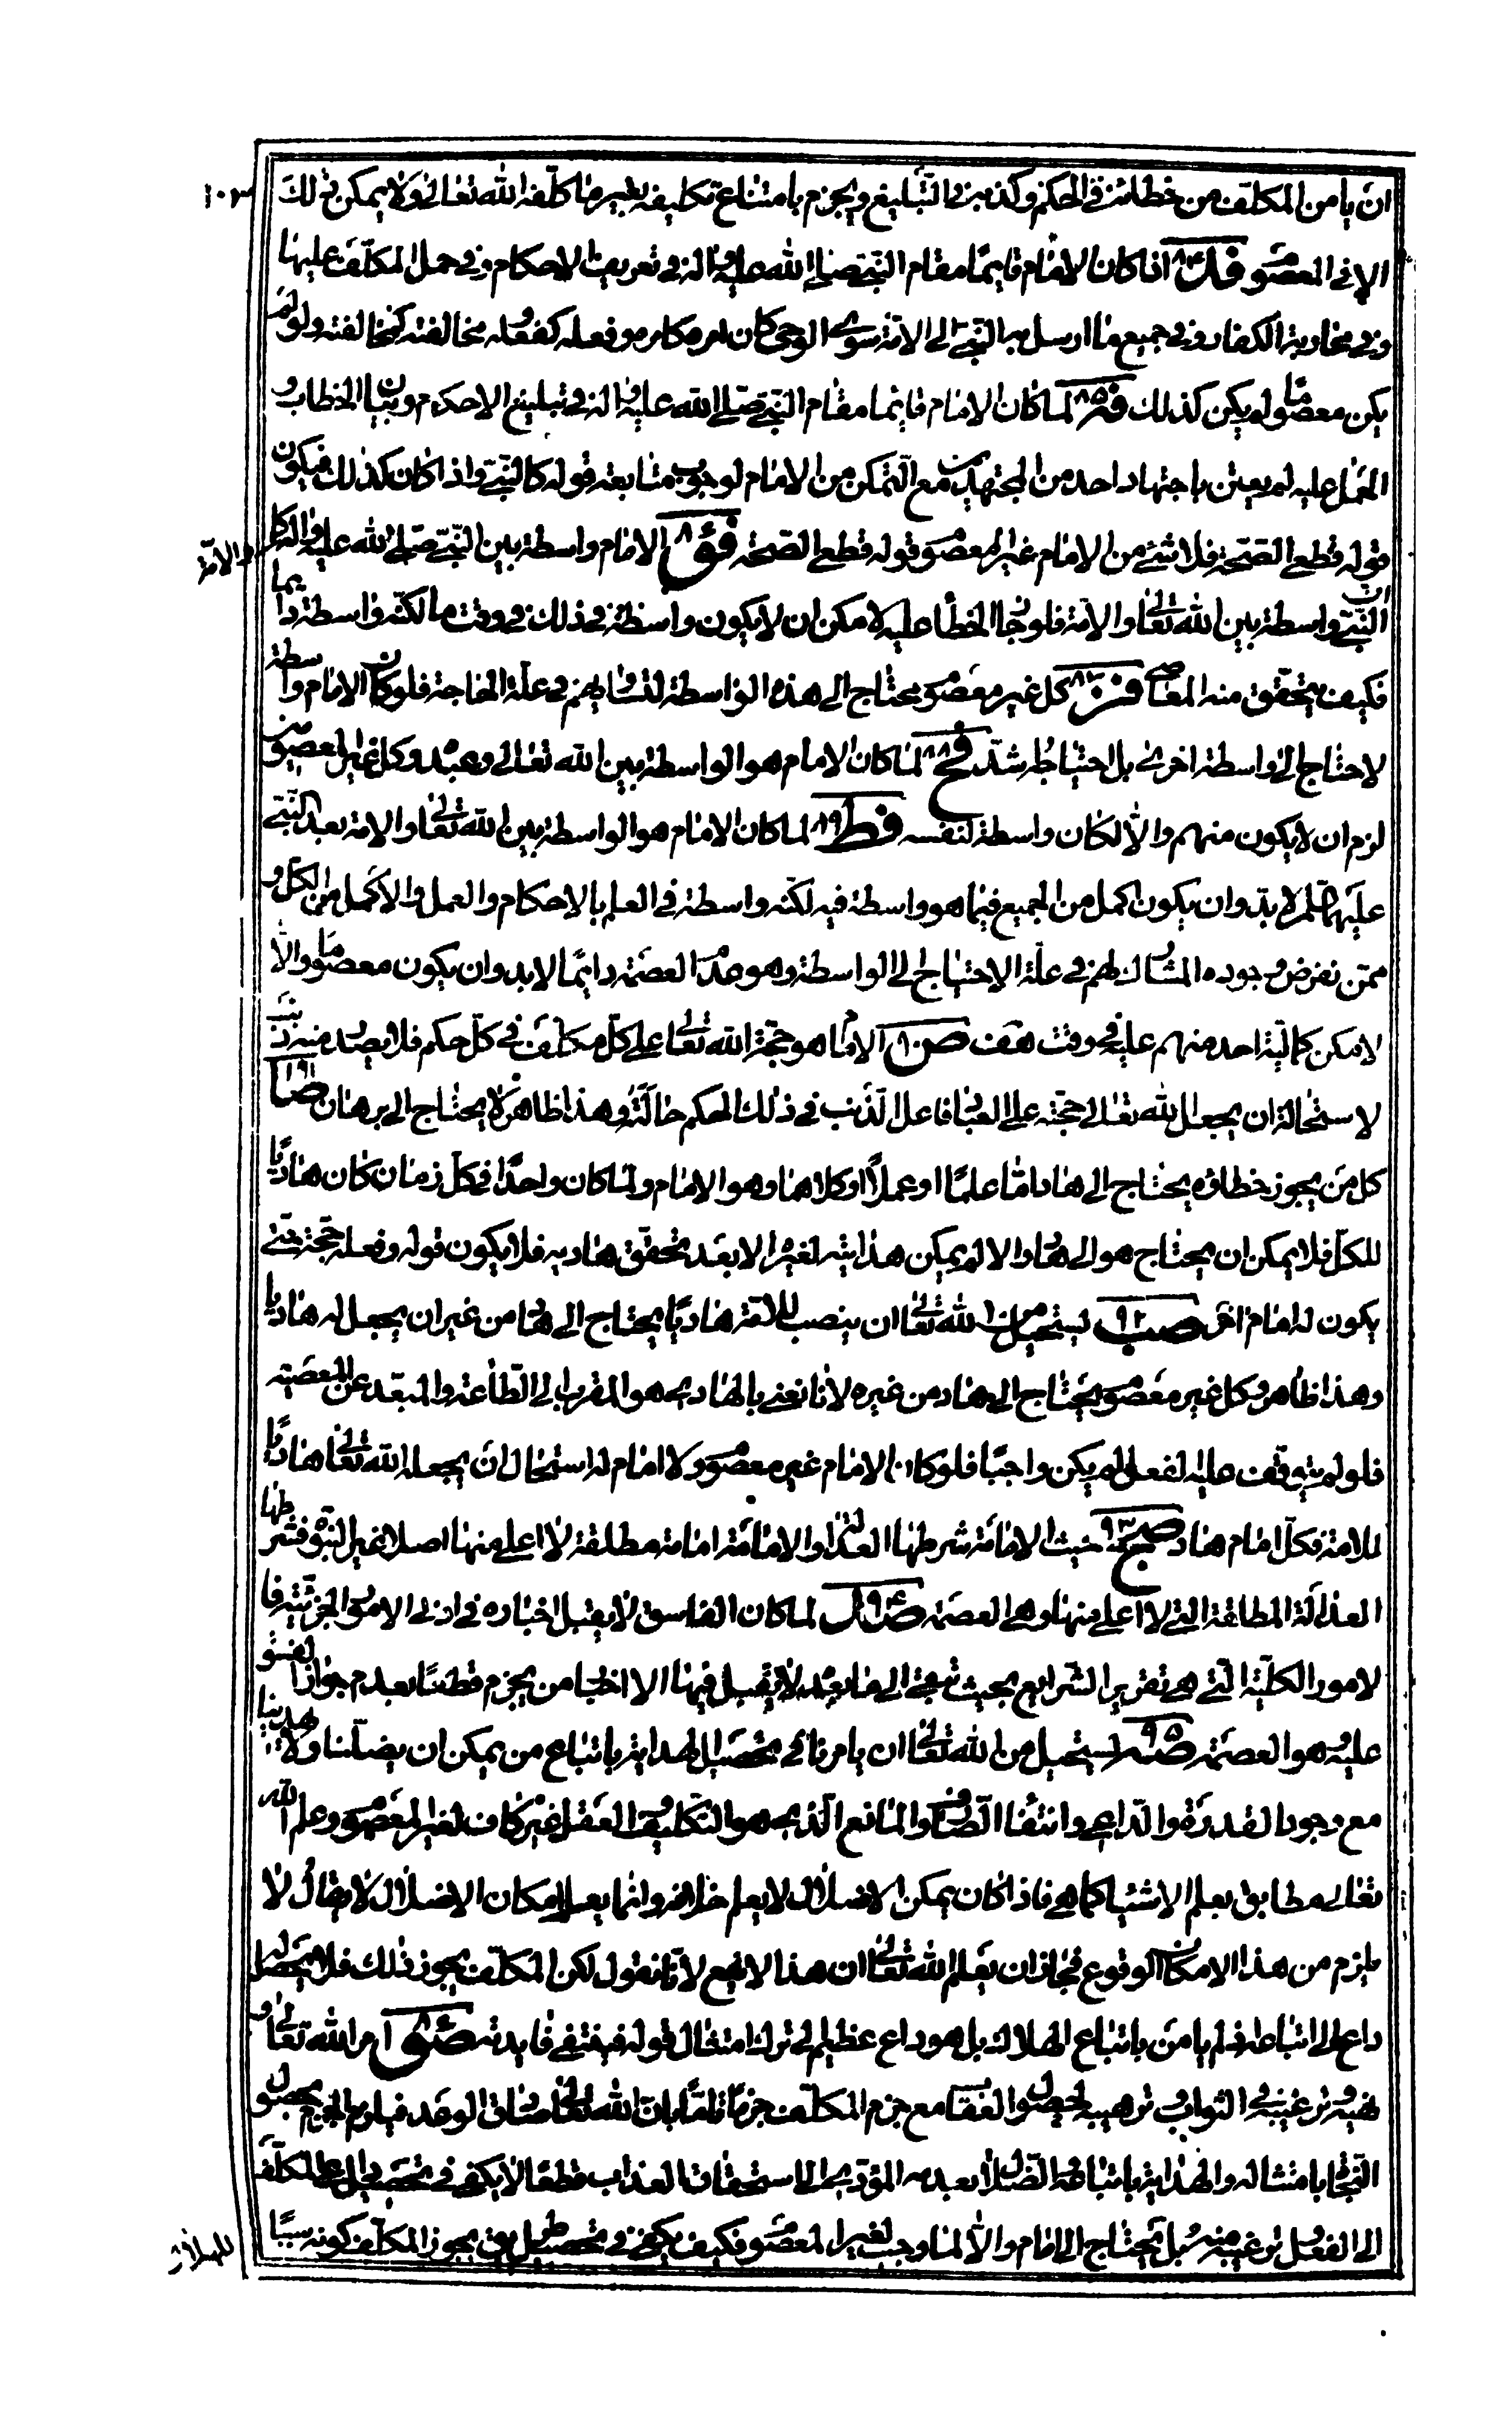 ان يا من المكلف من خطائه في الحكم وكذبه في التبليغ ويجزم بامتناع تكليفه بغير ما كلفه الله تعالى ولا يمكن ذلك
١٠٣
الا في المعصوم فد ٨٤ اذا كان الامام قايما مقام النبي صلى الله عليه واله في تعريف الاحكام وفي حمل المكلف عليها
وفي محاربة الكفار وفي جميع ما ارسل به النبي الى الامة سوى الوحي كان امره كامره وفعله كفعله مخالفته كمخالفته ولو لم
يكن معصوما لم يكن كذلك فه ٨٥ لما كان الامام قايما مقام النبي صلى الله عليه واله في تبليغ الاحكام وبيان الخطاب و
العمل عليه لم يعتن باجتهاد احد من المجتهدين مع التمكن من الامام لوجوب متابعة قوله كالنبي واذا كان كذلك فيكون
قوله قطعي الصحة فلا شئ من الامام غير المعصوم قوله قطعي الصحة فو ٨٦ الامام واسطة بين النبي صلى الله عليه واله
والامة كما
ان النبي واسطة بين الله تعالى والامة فلو جاز الخطأ عليه لامكن ان لا يكون واسطة في ذلك في وقت ما لكنه واسطة دايما
فكيف يتحقق منه المعاصي فز ٨٧ كل غير معصوم يحتاج الى هذه الواسطة لتساويهم في علة الحاجة فلو كان الامام واسطة
لاحتاج الى واسطة اخرى بل احتياجه اشد فح ٨٨ لما كان الامام هو الواسطة بين الله تعالى وعبده وكل غير المعصومين
لزم ان لا يكون منهم والا لكان واسطة لنفسه فط ٨٩ لما كان الامام هو الواسطة بين الله تعالى والامة بعد النبي
عليهما السلم لا بد وان يكون اكمل من الجميع فيما هو واسطة فيه لكنه واسطة في العلم بالاحكام والعمل والاكمل من الكل و
ممن نفرض وجوده المشارك لهم في علة الاحتياج الى الواسطة وهو عدم العصمة دايما لا بد وان يكون معصوما والا
لامكن كمالية احد منهم عليه في وقت هف ص ٩٠ الامام هو حجة الله تعالى على كل مكلف في كل حكم فلا يصدر منه ذنب
لاستحالة ان يجعل الله تعالى حجته على العباد فاعل الذنب في ذلك الحكم حالة وهذا ظاهر لا يحتاج الى برهان صا ٩١
كل من يجوز خطاؤه يحتاج الى هاد اما علما او عملا او كلاهما وهو الامام ولما كان واحدا في كل زمان كان هاديا
للكل فلا يمكن ان يحتاج هو الى هاد والا لم يمكن هدايته لغيره الا بعد تحقق هاديه فلا يكون قوله وفعله حجة حتى
يكون له امام اخر صب ٩٢ يستحيل من الله تعالى ان ينصب للامة هاديا يحتاج الى هاد من غير ان يجعل له هاديا
وهذا ظاهر وكل غير معصوم يحتاج الى هاد من غيره لانا نعني بالهادي هو المقرب الى الطاعة والمبعد عن المعصية
فلو لم يتوقف عليه لفعل لم يكن واجبا فلو كان الامام غير معصوم ولا امام له استحال ان يجعله الله تعالى هاديا
للامة فكل امام هاد صج ٩٣ حيث الامامة شرطها العدالة والامامة امامة مطلقة لا اعلى منها اصلا غير النبوة فشرطها
العدالة المطلقة التي لا اعلى منها وهي العصمة صد ٩٤ لما كان الفاسق لا يقبل اخباره في ادنى الامور الجزئية فا
لامور الكلية التي هي تقرير الشرايع بحيث تبقى الى ما بعده لا يقبل فيها الا اخبار من يجزم قطعا بعدم جواز الفسق
عليه وهو العصمة صه ٩٥ يستحيل من الله تعالى ان يامرنا في تحصيل الهداية باتباع من يمكن ان يضلنا ولا يهدينا
مع وجود القدرة والداعي وانتفاء الصارف والمانع الذي هو التكليف العقل غير كاف لغير المعصوم وعلم الله
تعالى مطابق يعلم الاشياء كما هي فاذا كان يمكن الاضلال لا يعلم خلافه وانما يعلم امكان الاضلال لا يقال لا
يلزم من هذا الامكان الوقوع فجاز ان يعلم الله تعالى ان هذا لا يقع لانا نقول لكن المكلف يجوز ذلك فلا يحصل له
داع الى اتباعه فلم يامن باتباع الهلاك بل هو داع عظيم الى ترك امتثال قوله فينتفي فايدته صو ٩٦ امر الله تعالى و
نهيه وترغيبه في الثواب وترهيبه لحصول العقاب مع جزم المكلف جزما تاما بان الله تعالى صادق الوعد فيلزم الجزم بحصول
النجاة بامتثاله والهداية باتباعه والضلال بعدمه المؤدي الى استحقاق العذاب قطعا لا يكفي في تحصيل داعي المكلف
الى الفعل وترغيبه منه بل يحتاج الى امام والا لما وجب لغير المعصوم فكيف يكفي في تحصيل طريق يجوز المكلف كونه سببا
للهلاك